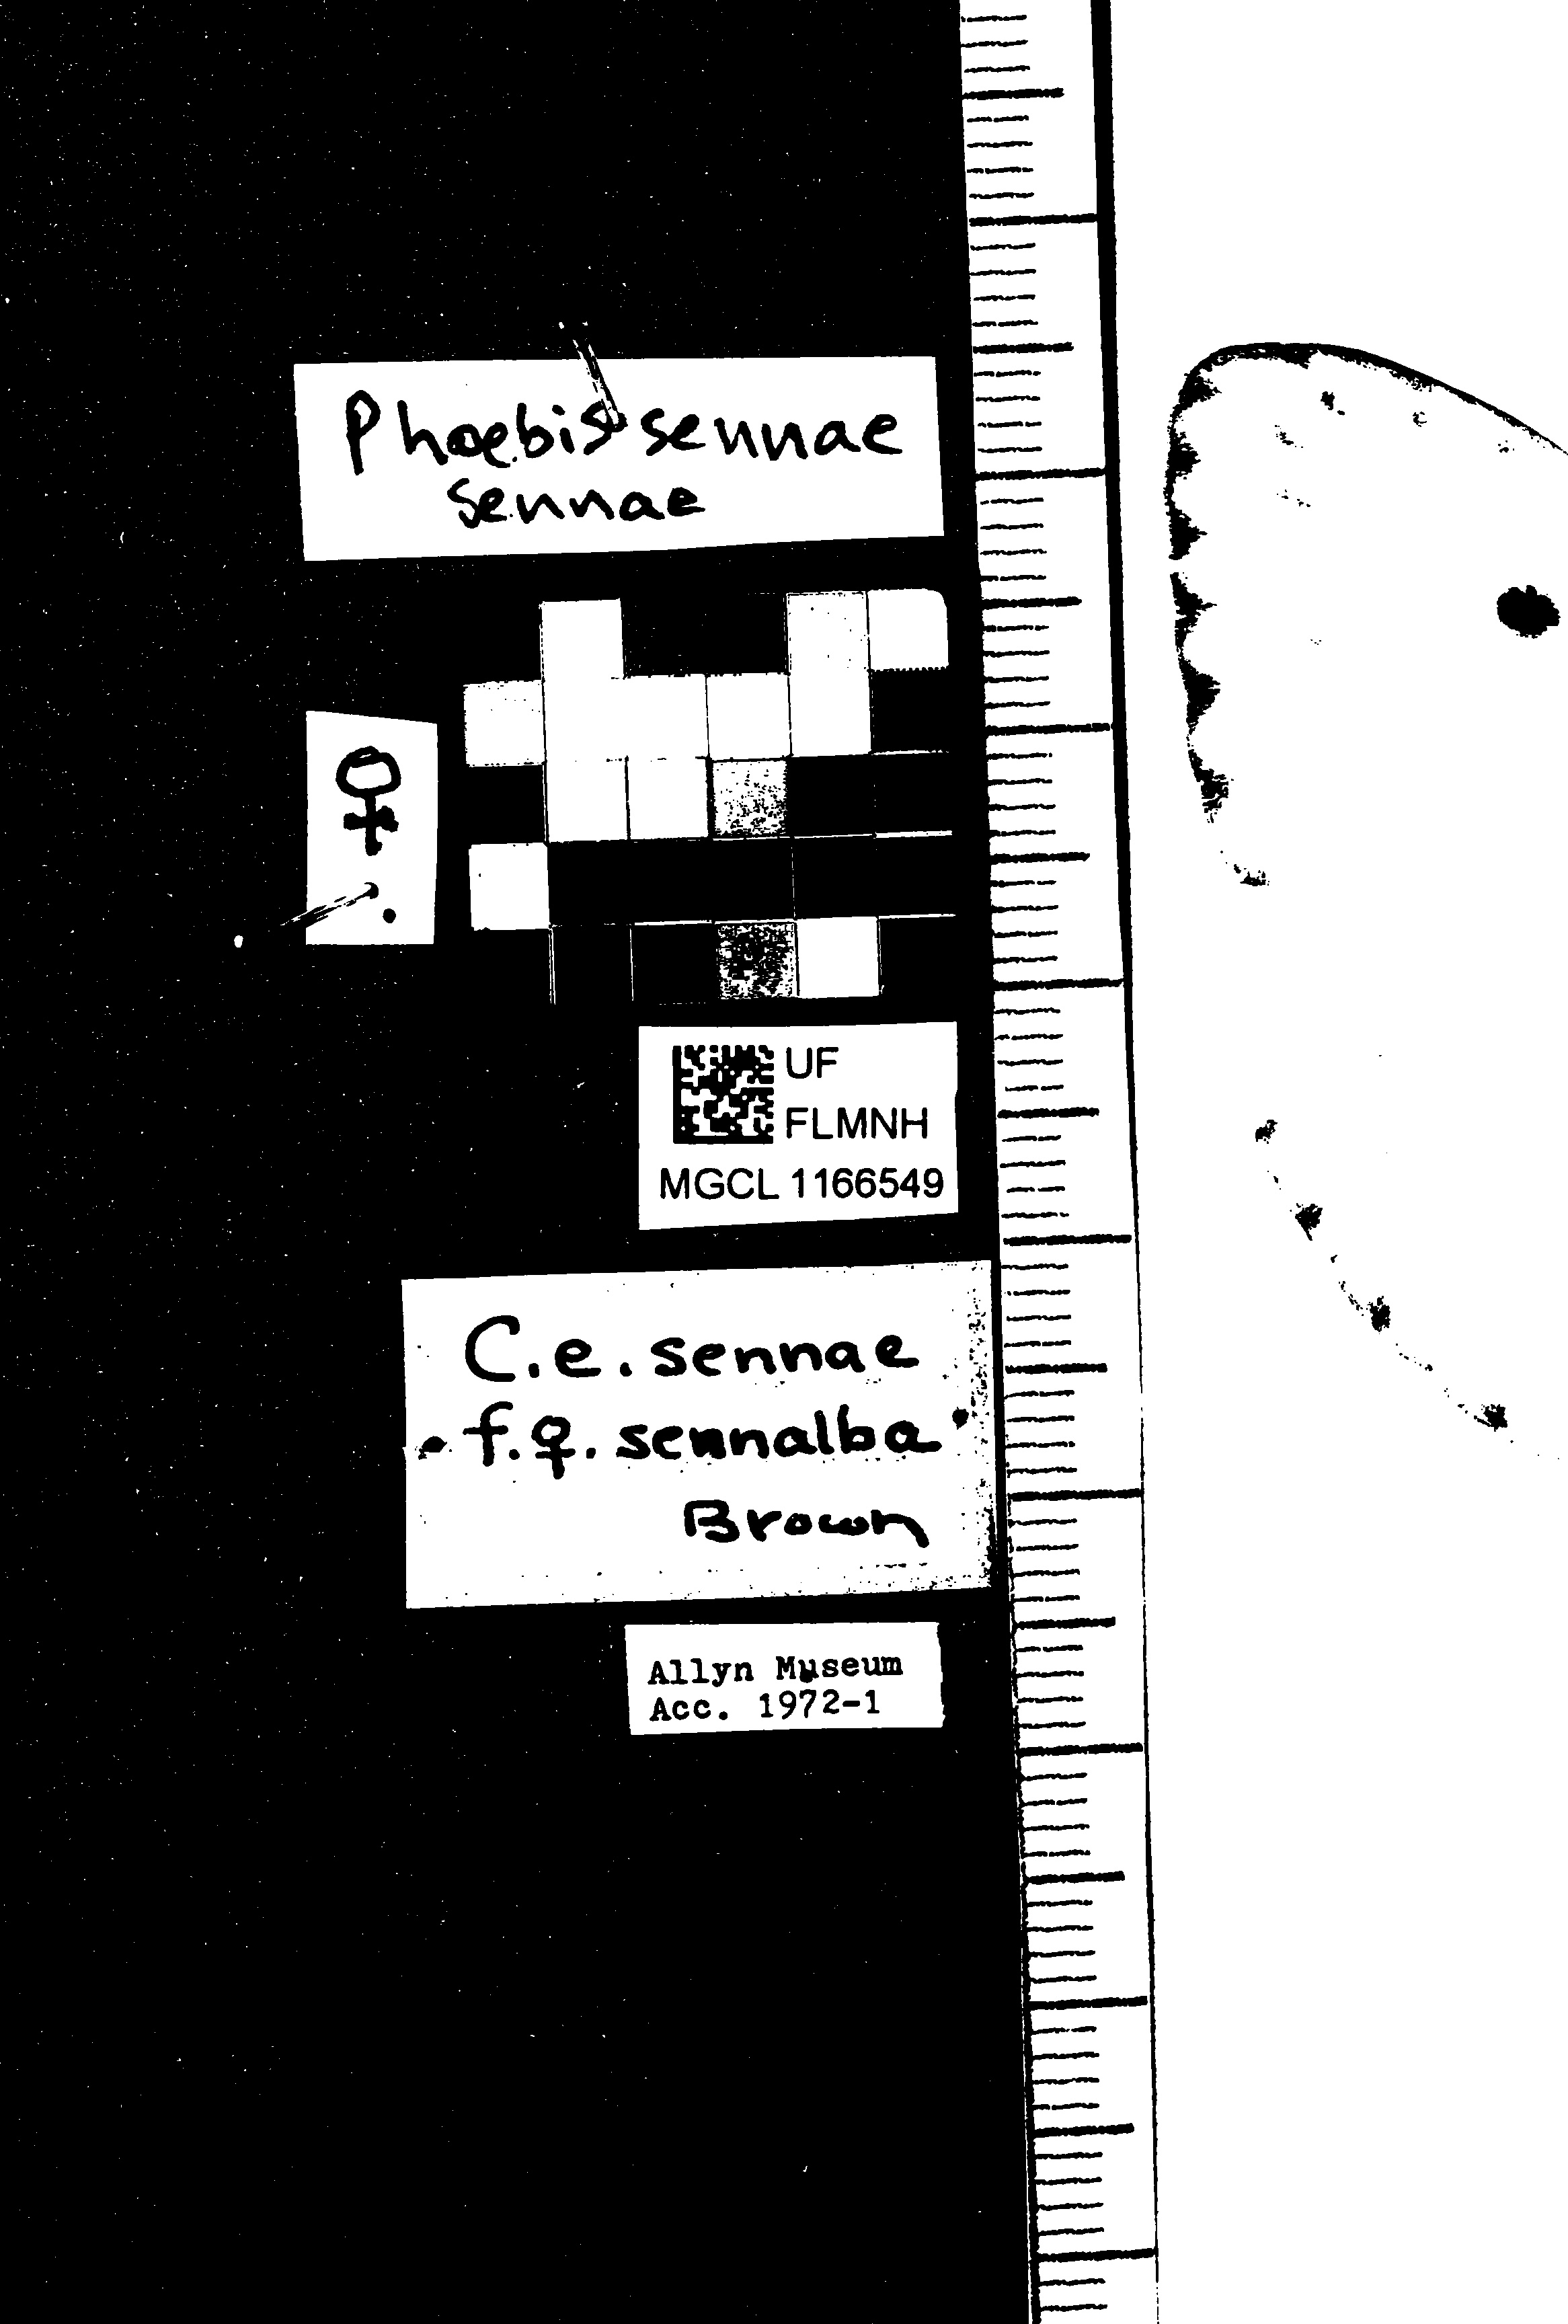 Phoebis sennae
sennae
♀
UF
FLMNH
MGCL 1166549
C.e. sennae
f.♀. sennalba
Brown
Allyn Museum
Acc. 1972-1